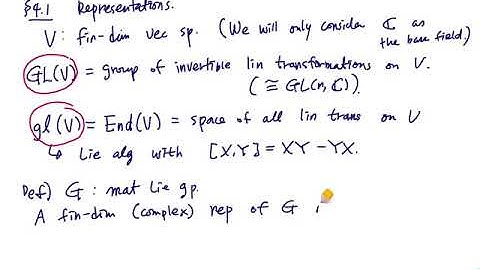 §4.1 Representations.
V: fin-dim vec sp. (We will only consider ℂ as
the base field.)
GL(V) = group of invertible lin transformations on V.
(≅ GL(n, ℂ)).
gl(V) = End(V) = space of all lin trans on V
↳ Lie alg with [X,Y] = XY - YX.
Def) G: mat Lie gp.
A fin-dim (complex) rep of G